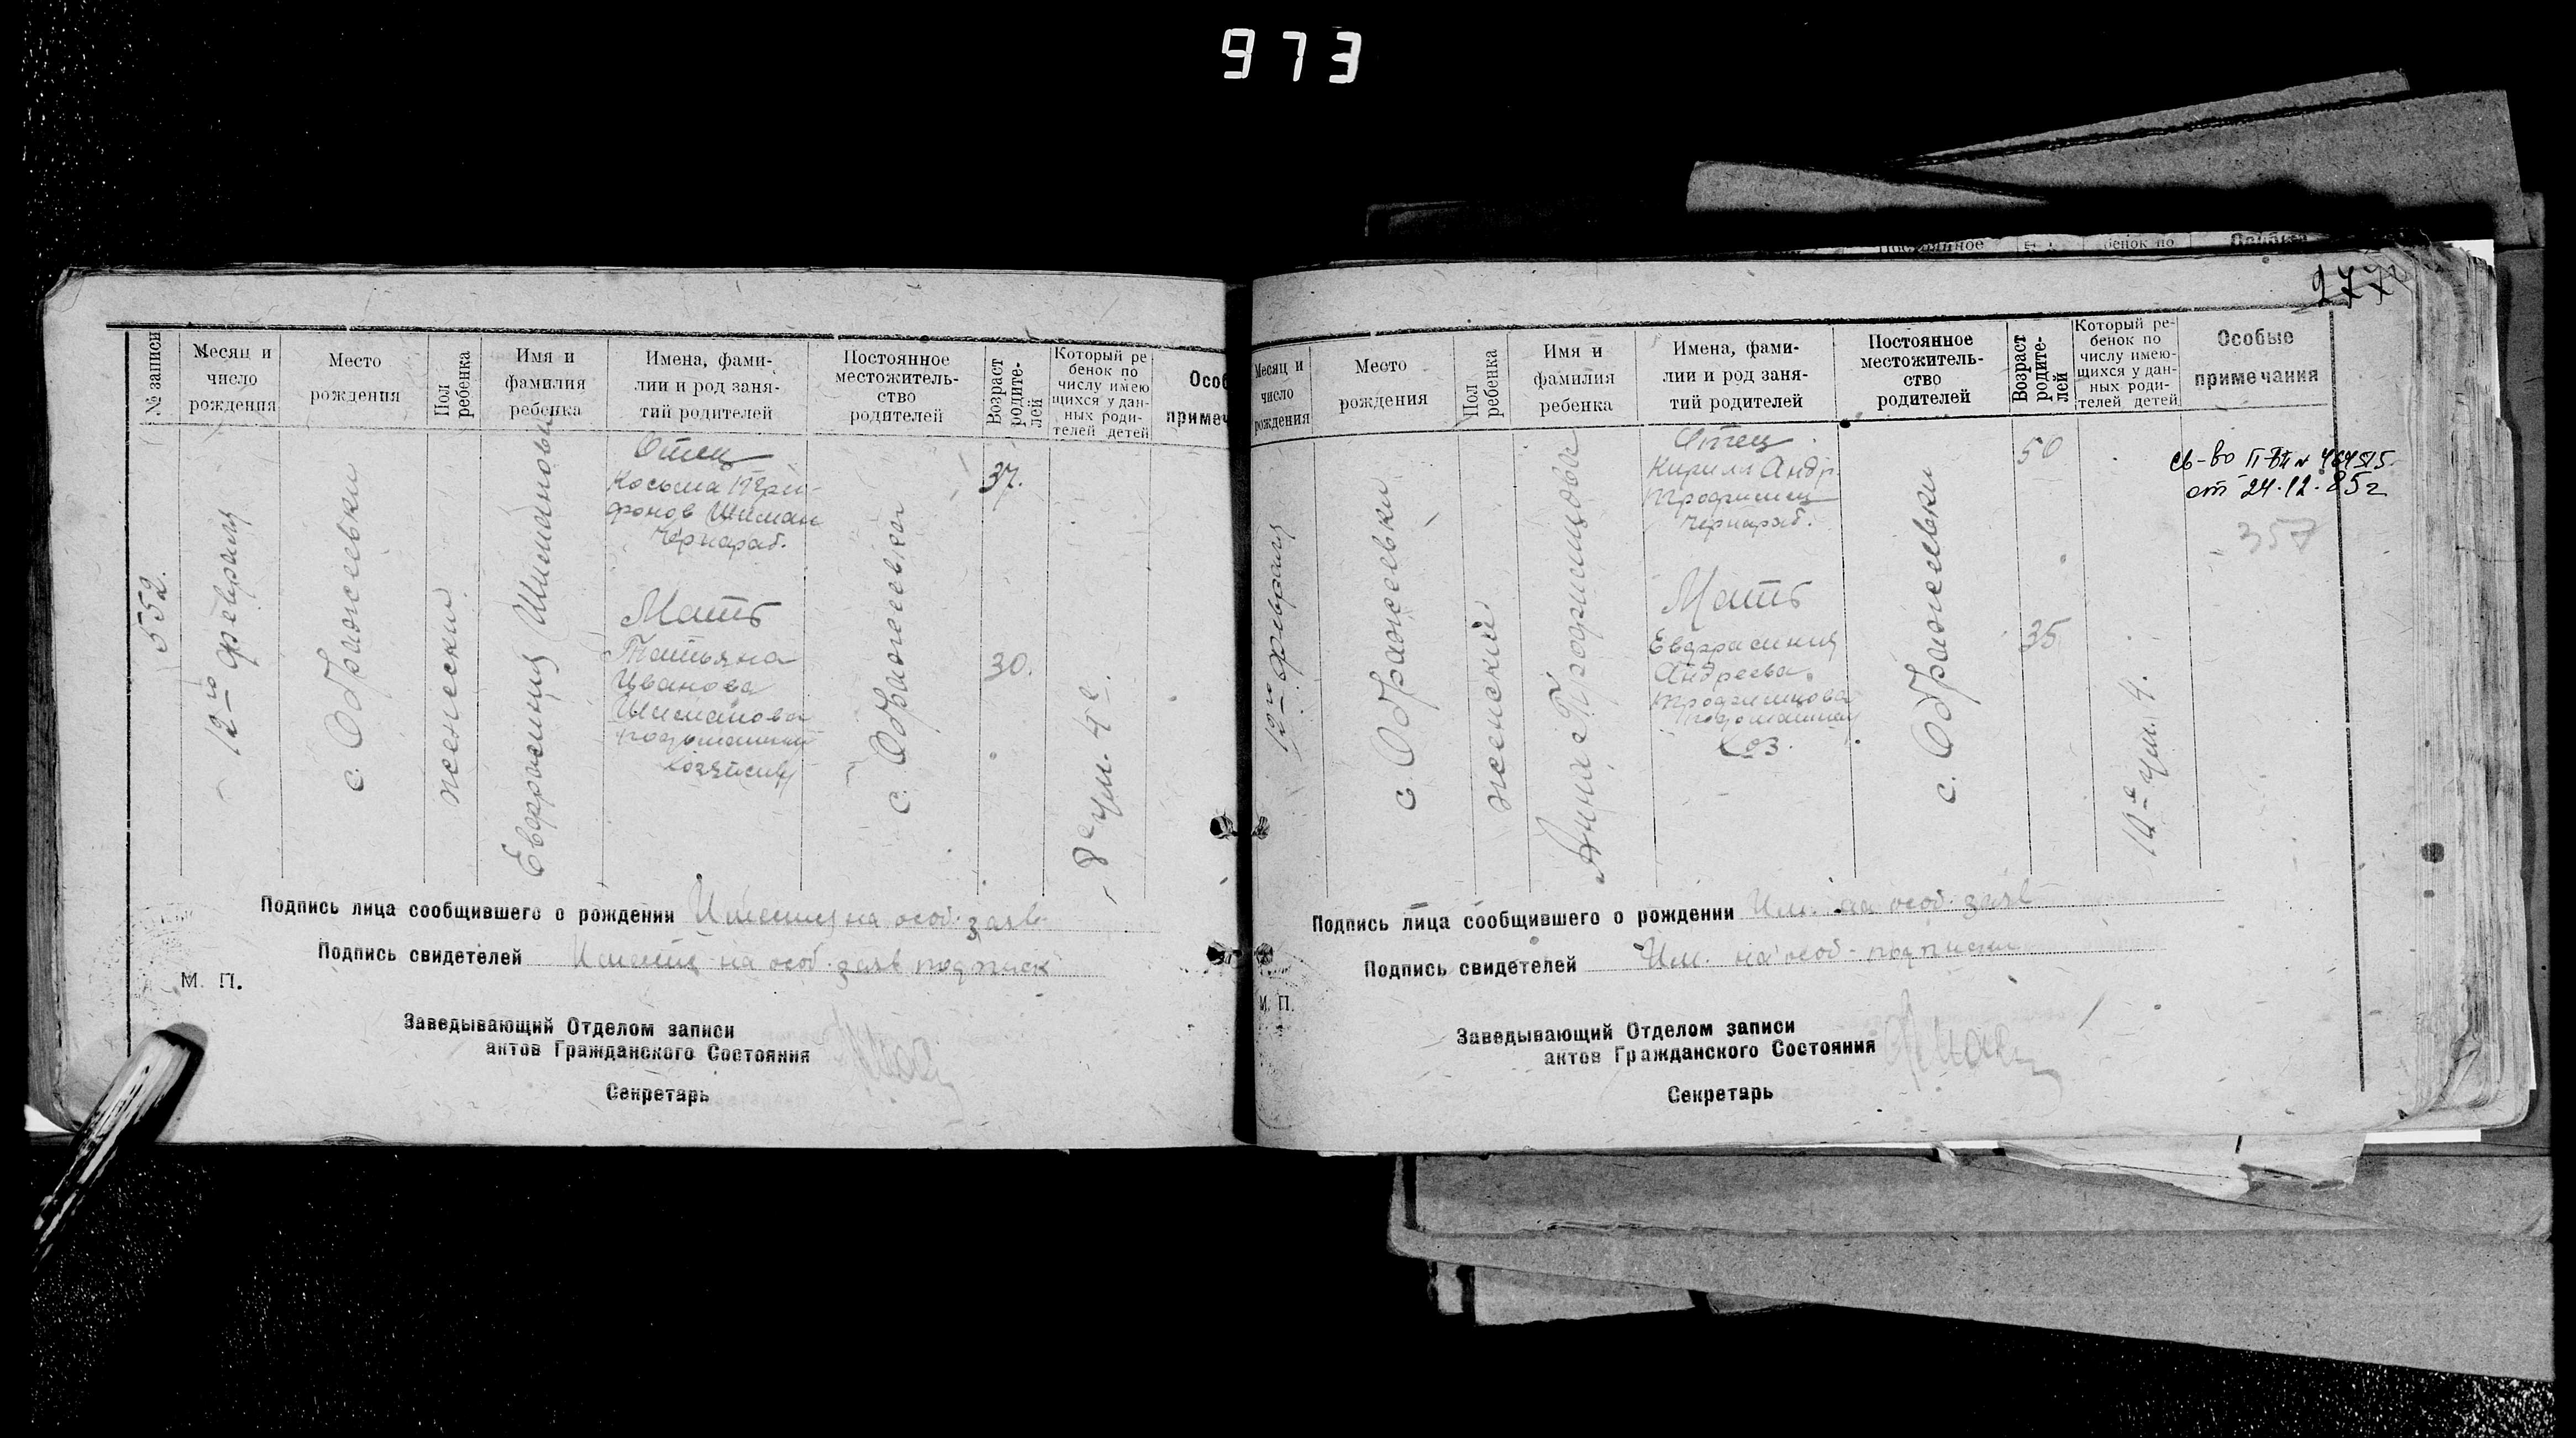 973
№ записи
Месяц и
число
рождения
Место
рождения
Пол
ребенка
Имя и
фамилия
ребенка
Имена, фами-
лии и род заня-
тий родителей
Постоянное
местожитель-
ство
родителей
Возраст
родите-
лей
Который ре
бенок по
числу имею
щихся у дан-
ных роди-
телей детей
Особ
примеч
552.
12-го февраля
с. Ображеевки
женский
Евфросиния
Отец
Косьма
Чернораб.
Мать
Татьяна
Иванова
Шиманова
с. Ображеевка
37.
30.
8е ум. 4е.
Подпись лица сообщившего о рождении Имеется на особ. заяв.
Подпись свидетелей Имеется на особ. заяв подписк
М. П.
Заведывающий Отделом записи
актов Гражданского Состояния
Секретарь
постоянное
бенок по
977
Месяц и
число
рождения
Место
рождения
Пол
ребенка
Имя и
фамилия
ребенка
Имена, фами-
лии и род заня-
тий родителей
Постоянное
местожитель-
ство
родителей
Возраст
родите-
лей
Который ре-
бенок по
числу имею-
щихся у дан-
ных роди-
телей детей
Особые
примечания
12-го февраля
с. Ображеевки
женский
Анна
Отец
Кирилл Андр.
Чернораб.
Мать
Евфросиния
Андреева
Хоз.
с. Ображеевки
50
35
10-е ум. 4.
св-во
от 24.12.85г
357
Подпись лица сообщившего о рождении Им. на особ. заяв
Подпись свидетелей Им. на особ-подписки
М. П.
Заведывающий Отделом записи
актов Гражданского Состояния
Секретарь